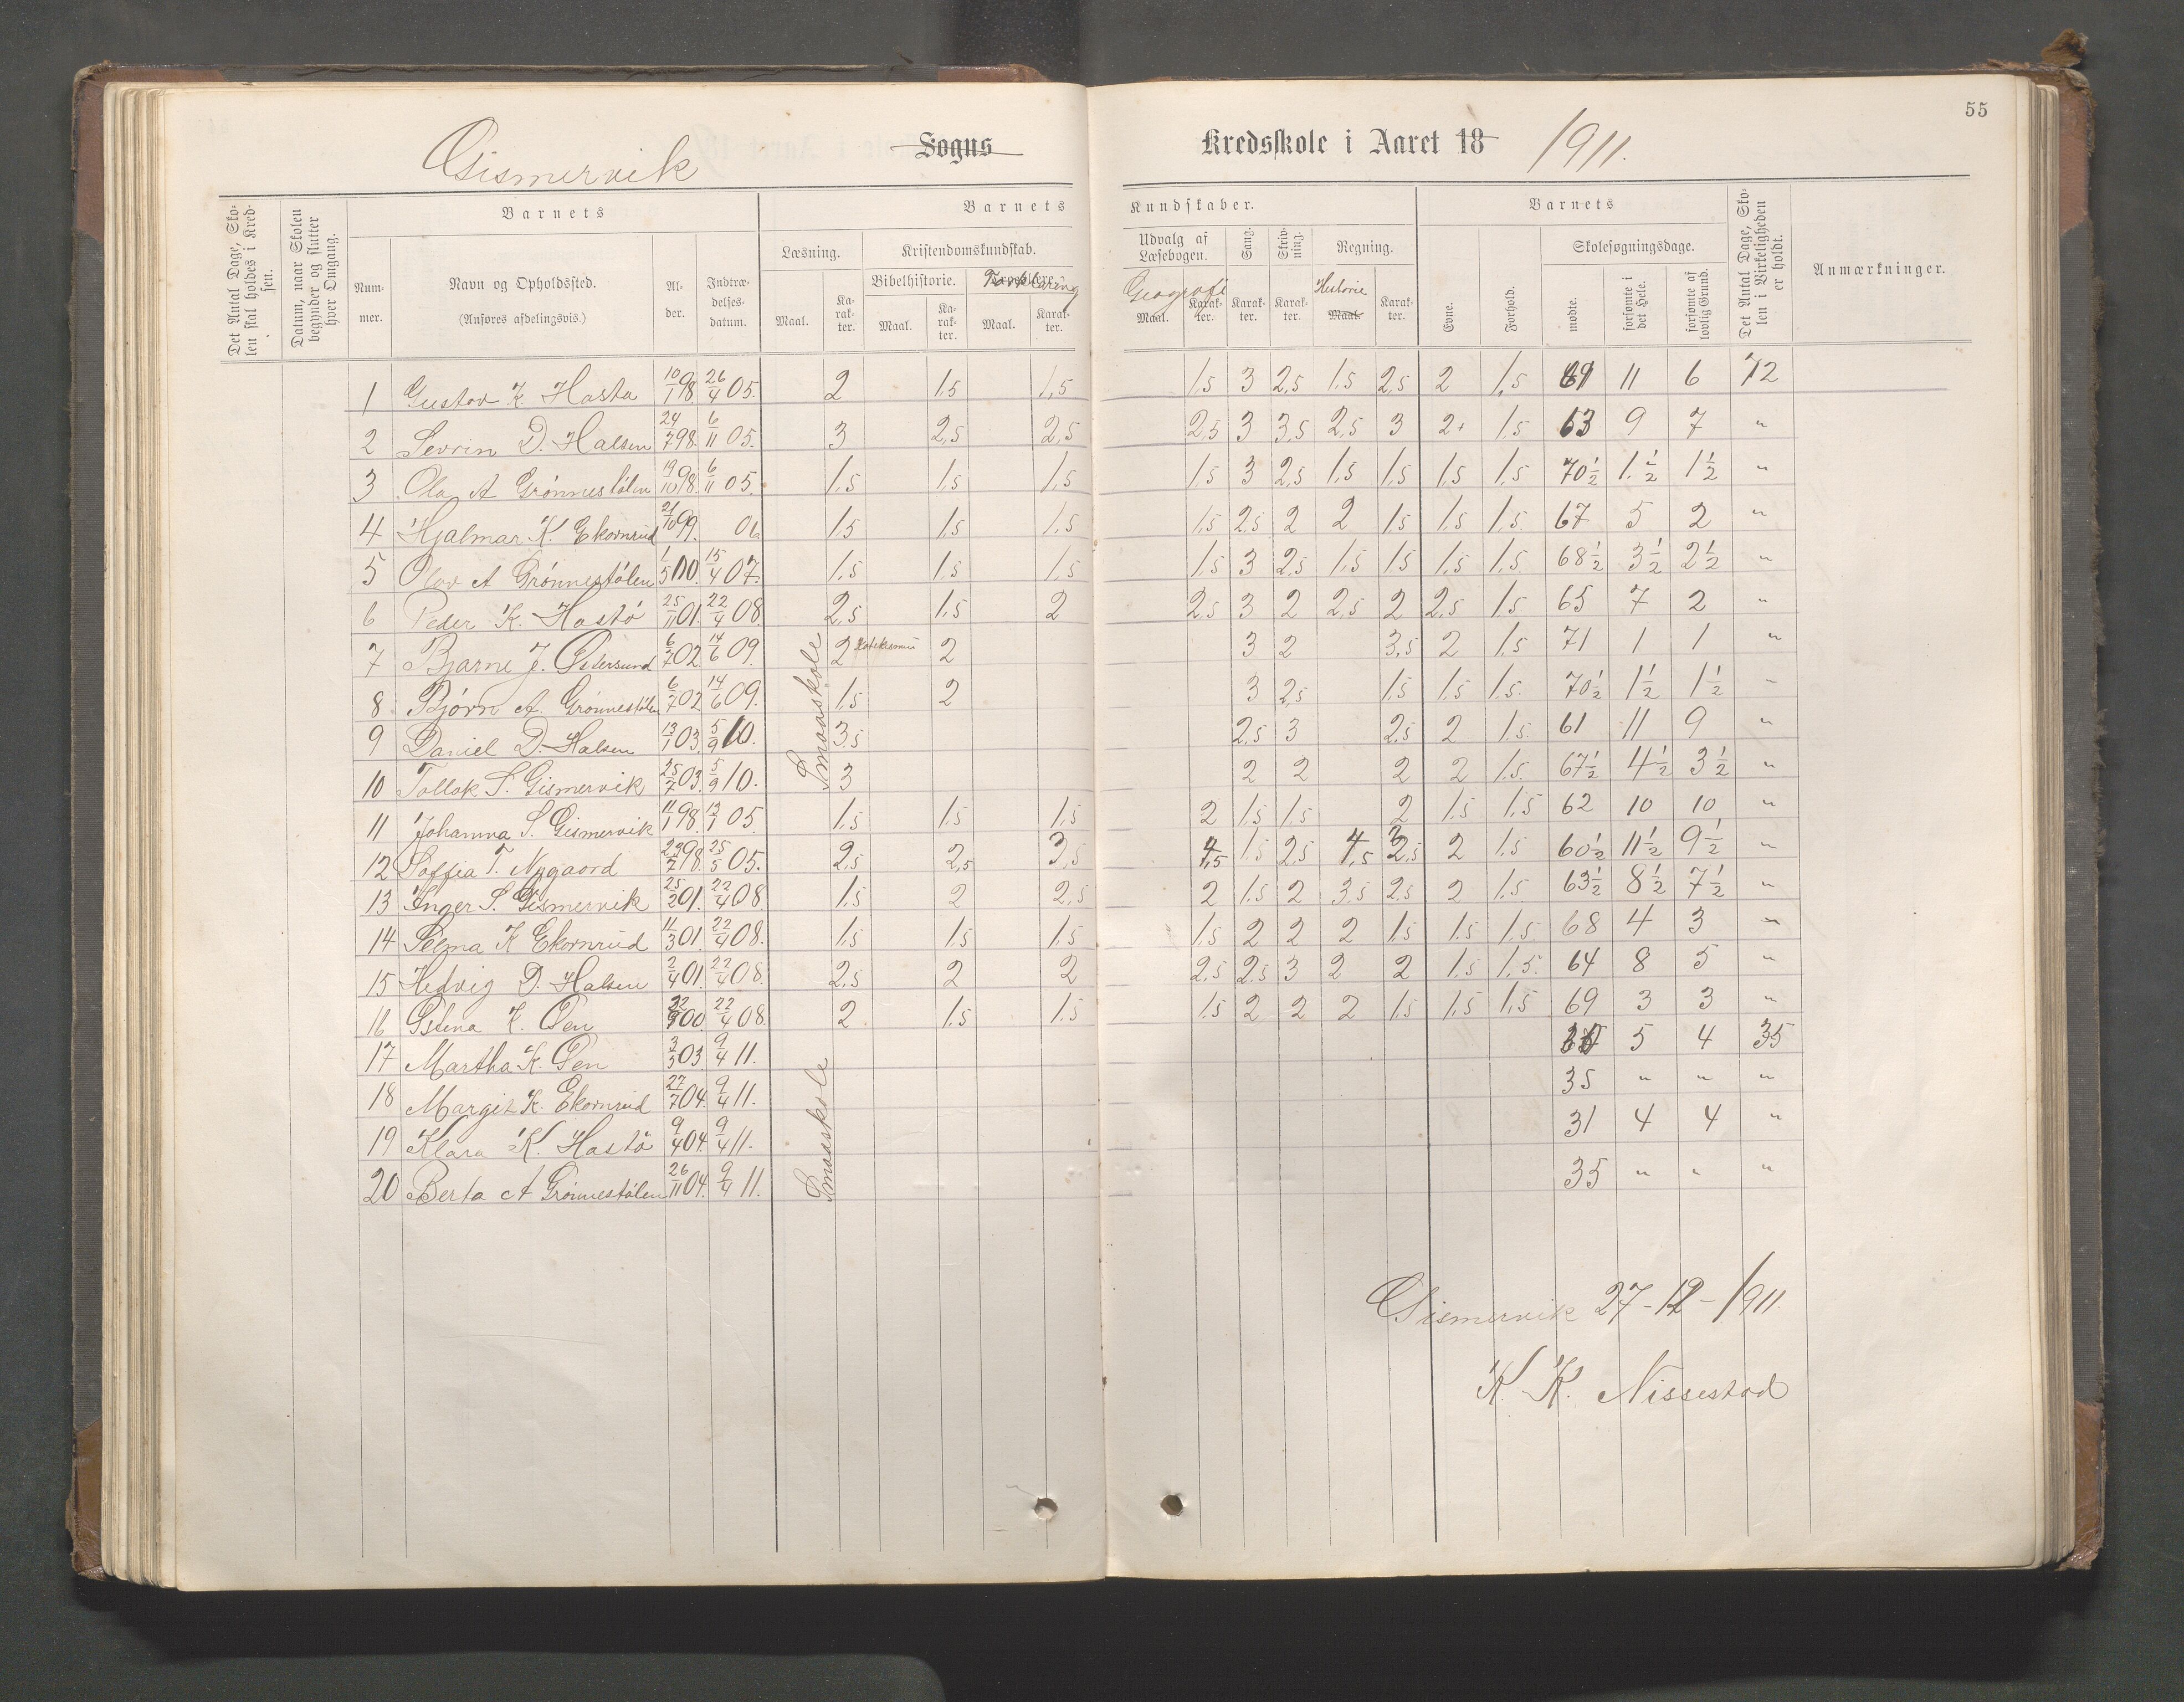 55
Gismervik Sogns Kredsskole i Aaret 18 1911.
Det Antal Dage, Skolen skal holdes i Kredsen.
Datum, naar Skolen begynder og slutter hver Omgang.
Barnets
Nummer.
Navn og Opholdssted.
(Anføres afdelingsvis.)
Alder.
Indtrædelsesdatum.
Barnets Kundskaber.
Læsning.
Maal. Karakter.
Kristendomskundskab.
Bibelhistorie.
Maal. Karakter.
Forklaring
Maal. Karakter.
Udvalg af Læsebogen.
Geografi
Maal. Karakter.
Sang. Karakter.
Skrivning. Karakter.
Regning.
Historie
Maal. Karakter.
Barnets
Evne.
Forhold.
Skolesøgningsdage.
mødte.
forsømte i det Hele.
forsømte af lovlig Grund.
Det Antal Dage, Skolen i Virkeligheden er holdt.
Anmærkninger.
1 Gustav K. Hasta 10/1 98 26/4 05. 2 1.5 1,5 1.5 3 2,5 1.5 2,5 2 1,5 61 11 6 72
2 Sevrin D. Halsen 24/7 98. 6/11 05. 3 2,5 2,5 2,5 3 3,5 2,5 3 2+ 1.5 63 9 7 "
3 Ola A Grønnestølen 19/10 98. 6/11 05. 1.5 1.5 1.5 1.5 3 2,5 1.5 1.5 1.5 1.5 70 1/2 1. 1/2 1 1/2 "
4 Hjalmar K. Ekornrud 21/10 99. 06 1.5 1.5 1.5 1.5 2.5 2 2 1.5 1.5 1.5. 67 5 2 "
5 Olav A Grønnestølen 1/5 00. 15/4 07. 1.5 1.5 1.5 1.5 3 2,5 1.5 1.5 1.5 1.5. 68 1/2 3 1/2 2 1/2 "
6 Peder K. Hastø 25/11 01. 22/4 08. 2,5 1.5 2 2,5 3 2 2,5 2 2,5 1.5 65 7 2 "
7 Bjarne J. Østersund 6/7 02. 14/6 09. Smaaskole 2 2 3 2 3,5 2 1.5 71 1 1 "
8 Bjørn A. Grønnestølen 6/7 02. 14/6 09. 1.5 2 3 2,5 1.5 1.5 1.5. 70 1/2 1 1/2 1 1/2 "
9 Daniel D. Halsen 13/1 03. 5/9 10. 3,5 2,5 3 2,5 2 1.5. 61 11 9 "
10 Tollak S. Gismervik 25/7 03. 5/9 10. 3 2 2 2 2 1.5. 67 1/2 4 1/2 3 1/2 "
11 Johanna S. Gismervik 11/1 98. 13/1 05. 1.5 1.5 1.5 2 1.5 1.5 2 1.5 1.5 62 10 10 "
12 Soffia T. Nygaard 23/7 98. 25/5 05. 2,5 2,5 3,5 4,5 1.5 2,5 4,5 2,5 2 1.5 60 1/2 11 1/2 9 1/2 "
13 Inger S. Gismervik 25/2 01. 22/4 08 1.5 2 2,5 2 1.5 2 3,5 2,5 2 1.5 63 1/2 8 1/2 7 1/2 "
14 Selma K Ekornrud 11/3 01. 22/4 08. 1.5 1.5 1.5 1.5 2 2 2 1.5 1.5 1.5. 68 4 3 "
15 Hedvig D. Halsen 2/4 01. 22/4 08. 2,5 2 2 2,5 2.5 3 2 2 1.5 1.5. 64 8 5 "
16 Gstina K. Øen 00. 22/4 08. 2 1.5 1.5 1.5 2 2 2 1.5 1.5 1.5 69 3 3 "
17 Martha K. Øen 3/5 03. 9/4 11. Smaaskole 30 5 4 35
18 Margit K. Ekornrud 27/7 04. 9/4 11. 35 " " "
19 Klara K. Hastø 9/4 04. 9/4 11. 31 4 4 "
20 Berta A Grønnestølen 26/11 04. 9/4 11. 35 " " "
Gismervik 27-12-1911.
K. K. Nissestad